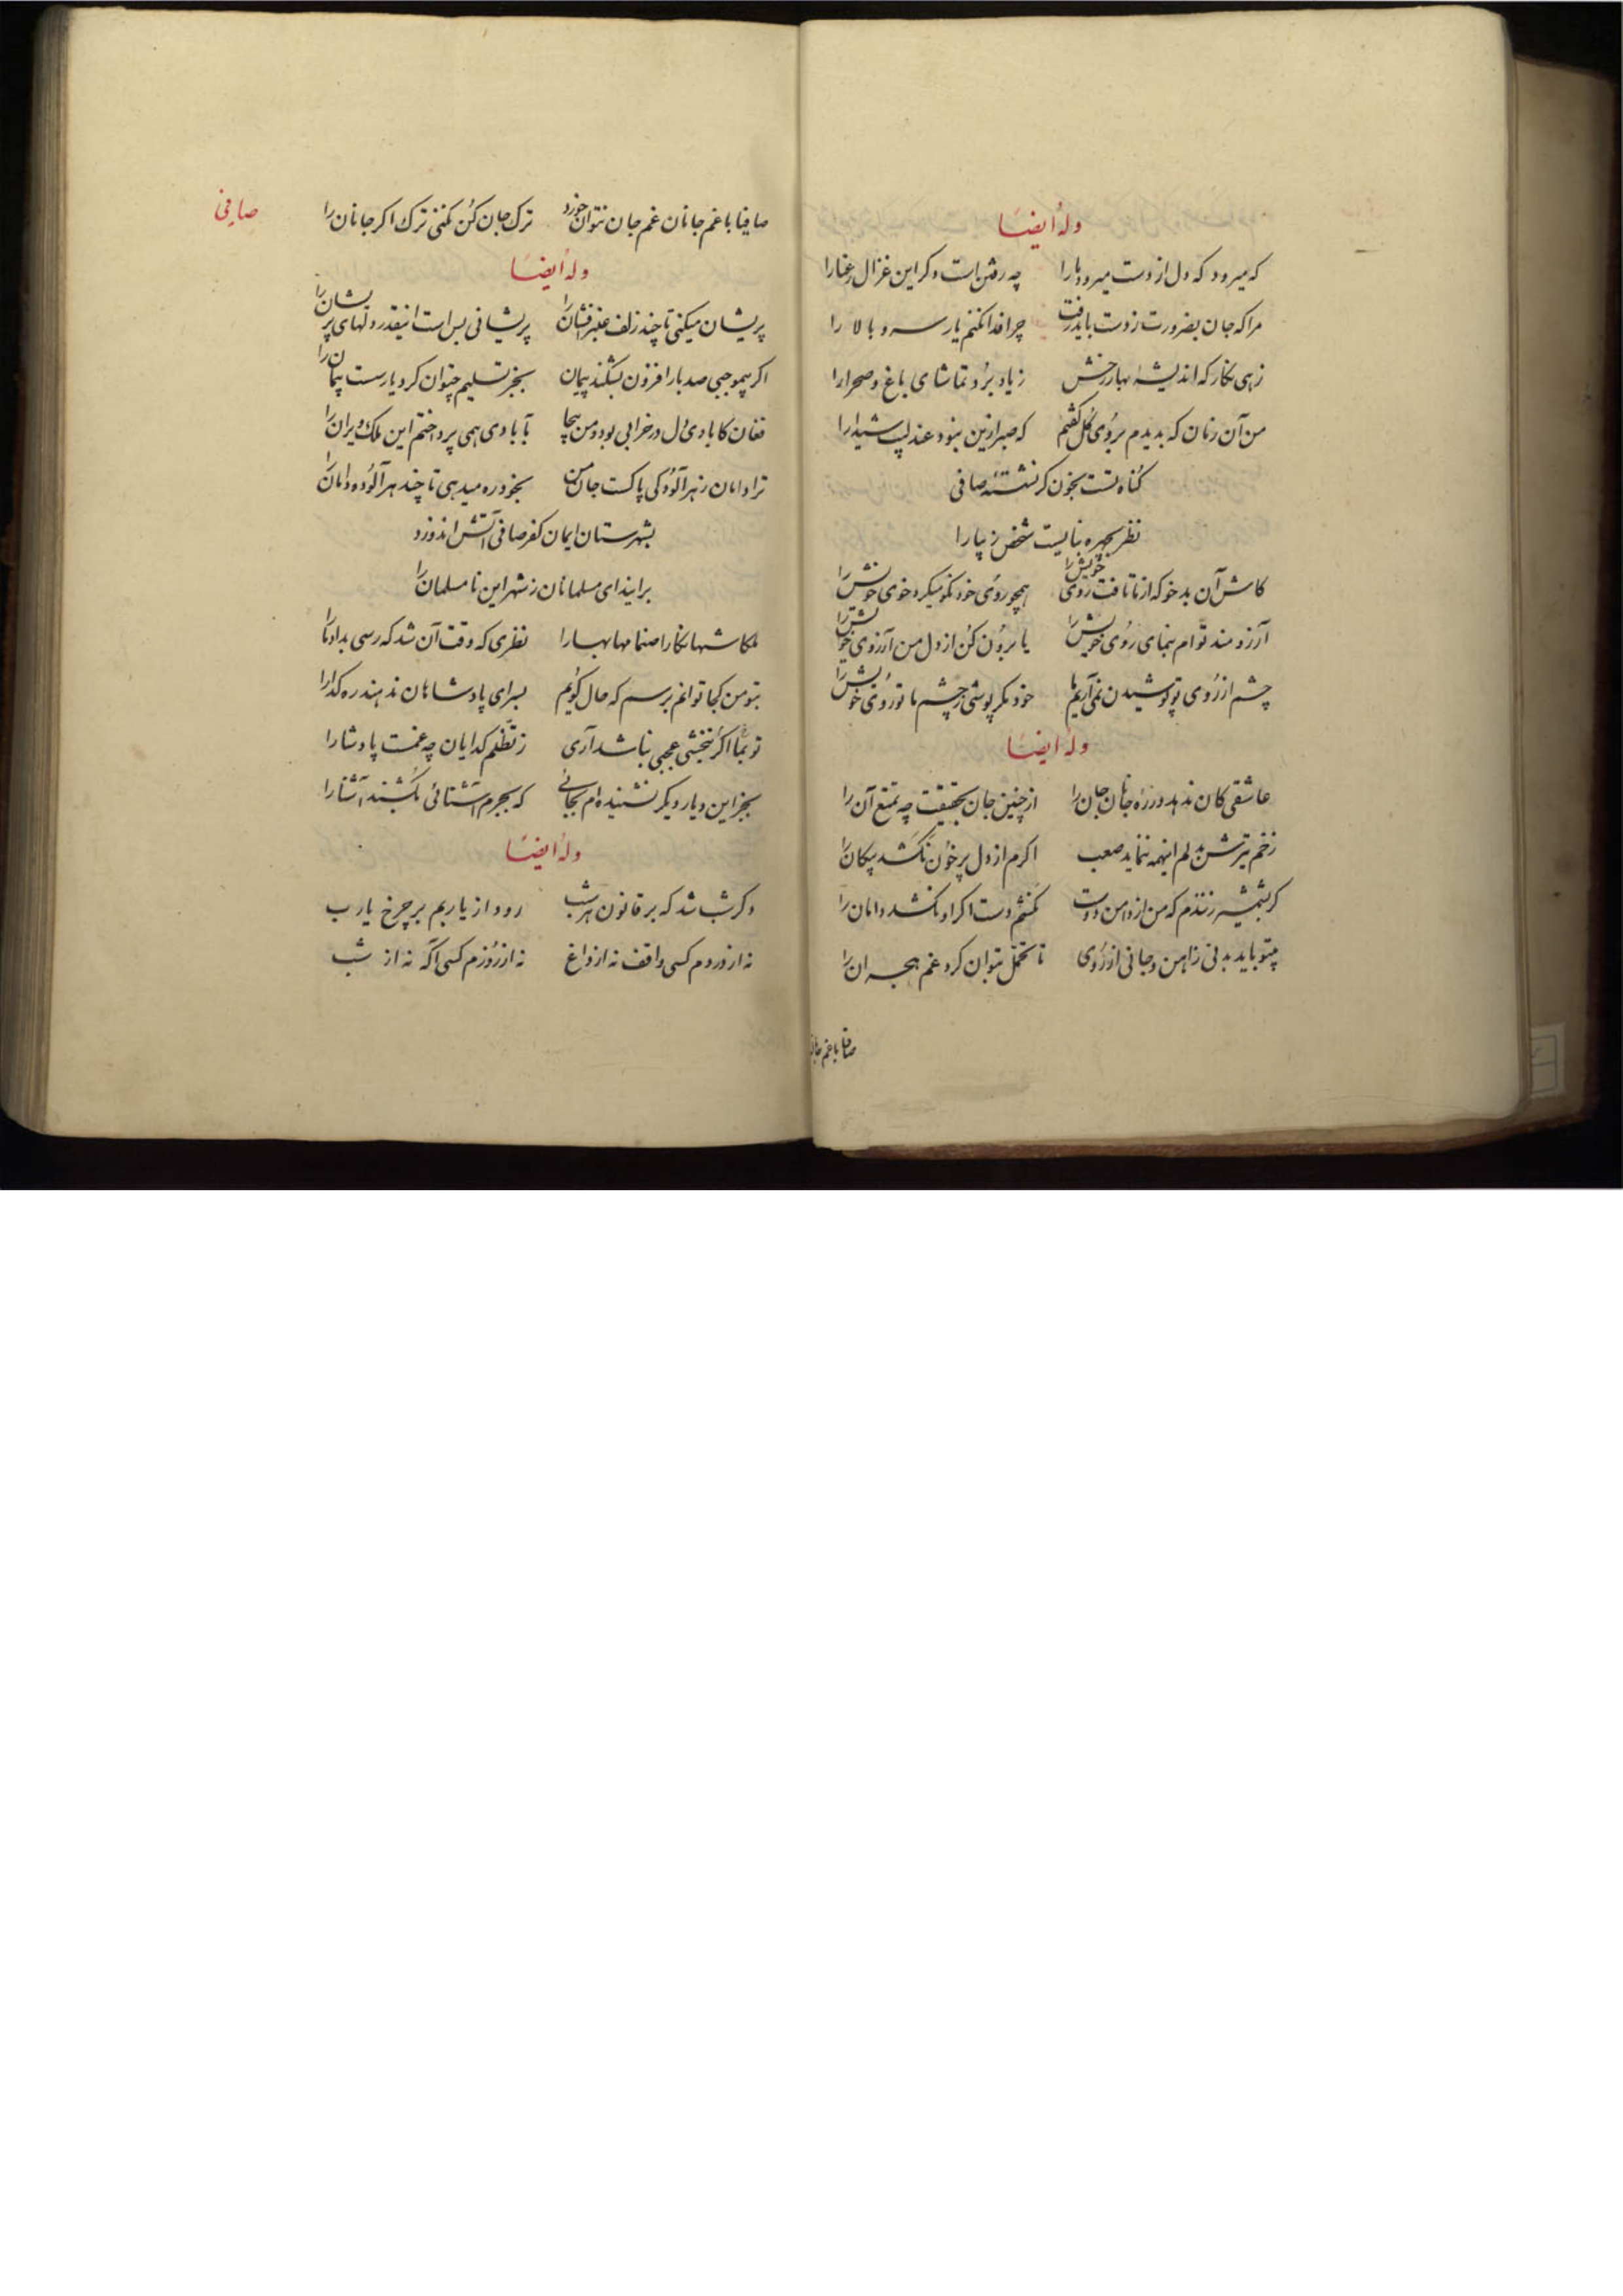 وله ایضاً
که میرود که دل از دست میرود ما را چه رفتن است دکر این غزال رعنا را
مرا که جان بضرورت ز دست باید رفت چرا فدا نکنم یار سرو بالا را
زهی نکار که اندیشهٔ بهار رخش ز یاد برد تماشای باغ و صحرا را
من آن زمان که بدیدم بروی کل کفتم که صبر ازین نبود عندلیب شیدا را
کناه تست بخون کر نشسته صافی
نظر بچهره نبایست شخص زیبا را
کاش آن بدخو که از ما تافت روی خویش را همچو روی خود نکو میکرد خوی خویش را
آرزومند توام بنمای روی خویش را یا برون کن از دل من آرزوی خویش را
چشم از روی تو پوشیدن نمی آریم ما خود مکر پوشی ز چشم ما تو روی خویش را
وله ایضاً
عاشقی کان ندهد در ره جانان جان را از چنین جان بحقیقت چه تمتع آن را
زخم تیرش بدلم اینهمه ننماید صعب اکرم از دل پر خون نکشد پیکان را
کر بشمشیر زنندم که من از دامن دوست نکشم دست اکر او نکشد دامان را
تنی باید بدنی ز آهن و جانی از روی تا تحمل بتوان کرد غم هجران را
صافیا با غم جانا
صافیا با غم جانان غم جان نتوان خورد ترک جان کن نکنی ترک اکر جانان را
صافی
وله ایضاً
پریشان میکنی تا چند زلف عنبرافشان را پریشانی بس است اینقدر دلهای پریشان را
اکر بیموجبی صد بار افزون بشکند پیمان بجز تسلیم چتوان کرد یار سست پیمان را
فغان کابادی دل در خرابی بود و من بیجا بآبادی همی پرداختم این ملک ویران را
ترا دامان ز هر آلودکی پاکست جان من بخود ره میدهی تا چند هر آلوده دامان را
بشهرستان ایمان کفر صافی آتش اندوزد
برانید ای مسلمانان ز شهر این نامسلمان را
ملکا شها نکارا صنما مها بهارا نظری که وقت آن شد که رسی بداد ما را
بتو من کجا توانم برسم که حال کویم بسرای پادشاهان ندهند ره کدا را
تو بما اکر نبخشی عجبی نباشد آری ز تظلم کدایان چه غمست پادشا را
بجز این دیار دیکر نشنیده ام بجائی که بجرم آشنائی بکشند آشنا را
وله ایضاً
دکر شب شد که بر قانون هر شب رود از یاربم بر چرخ یارب
نه از دردم کسی واقف نه از داغ نه از روزم کسی آکه نه از شب